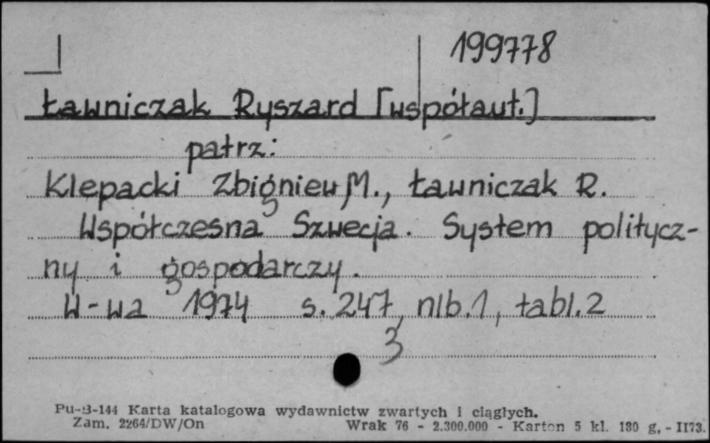 199778
Ławniczak Ryszard [współaut.]
patrz:
Klepacki Zbigniew M., Ławniczak R.
Współczesna Szwecja. System politycz-
ny i gospodarczy.
W-wa 1974 s. 247, nlb. 1, tabl. 2
3
Pu-B-144 Karta katalogowa wydawnictw zwartych i ciągłych.
Zam. 2264/DW/On Wrak 76 - 2.300.000 - Karton 5 kl. 180 g, - II73.